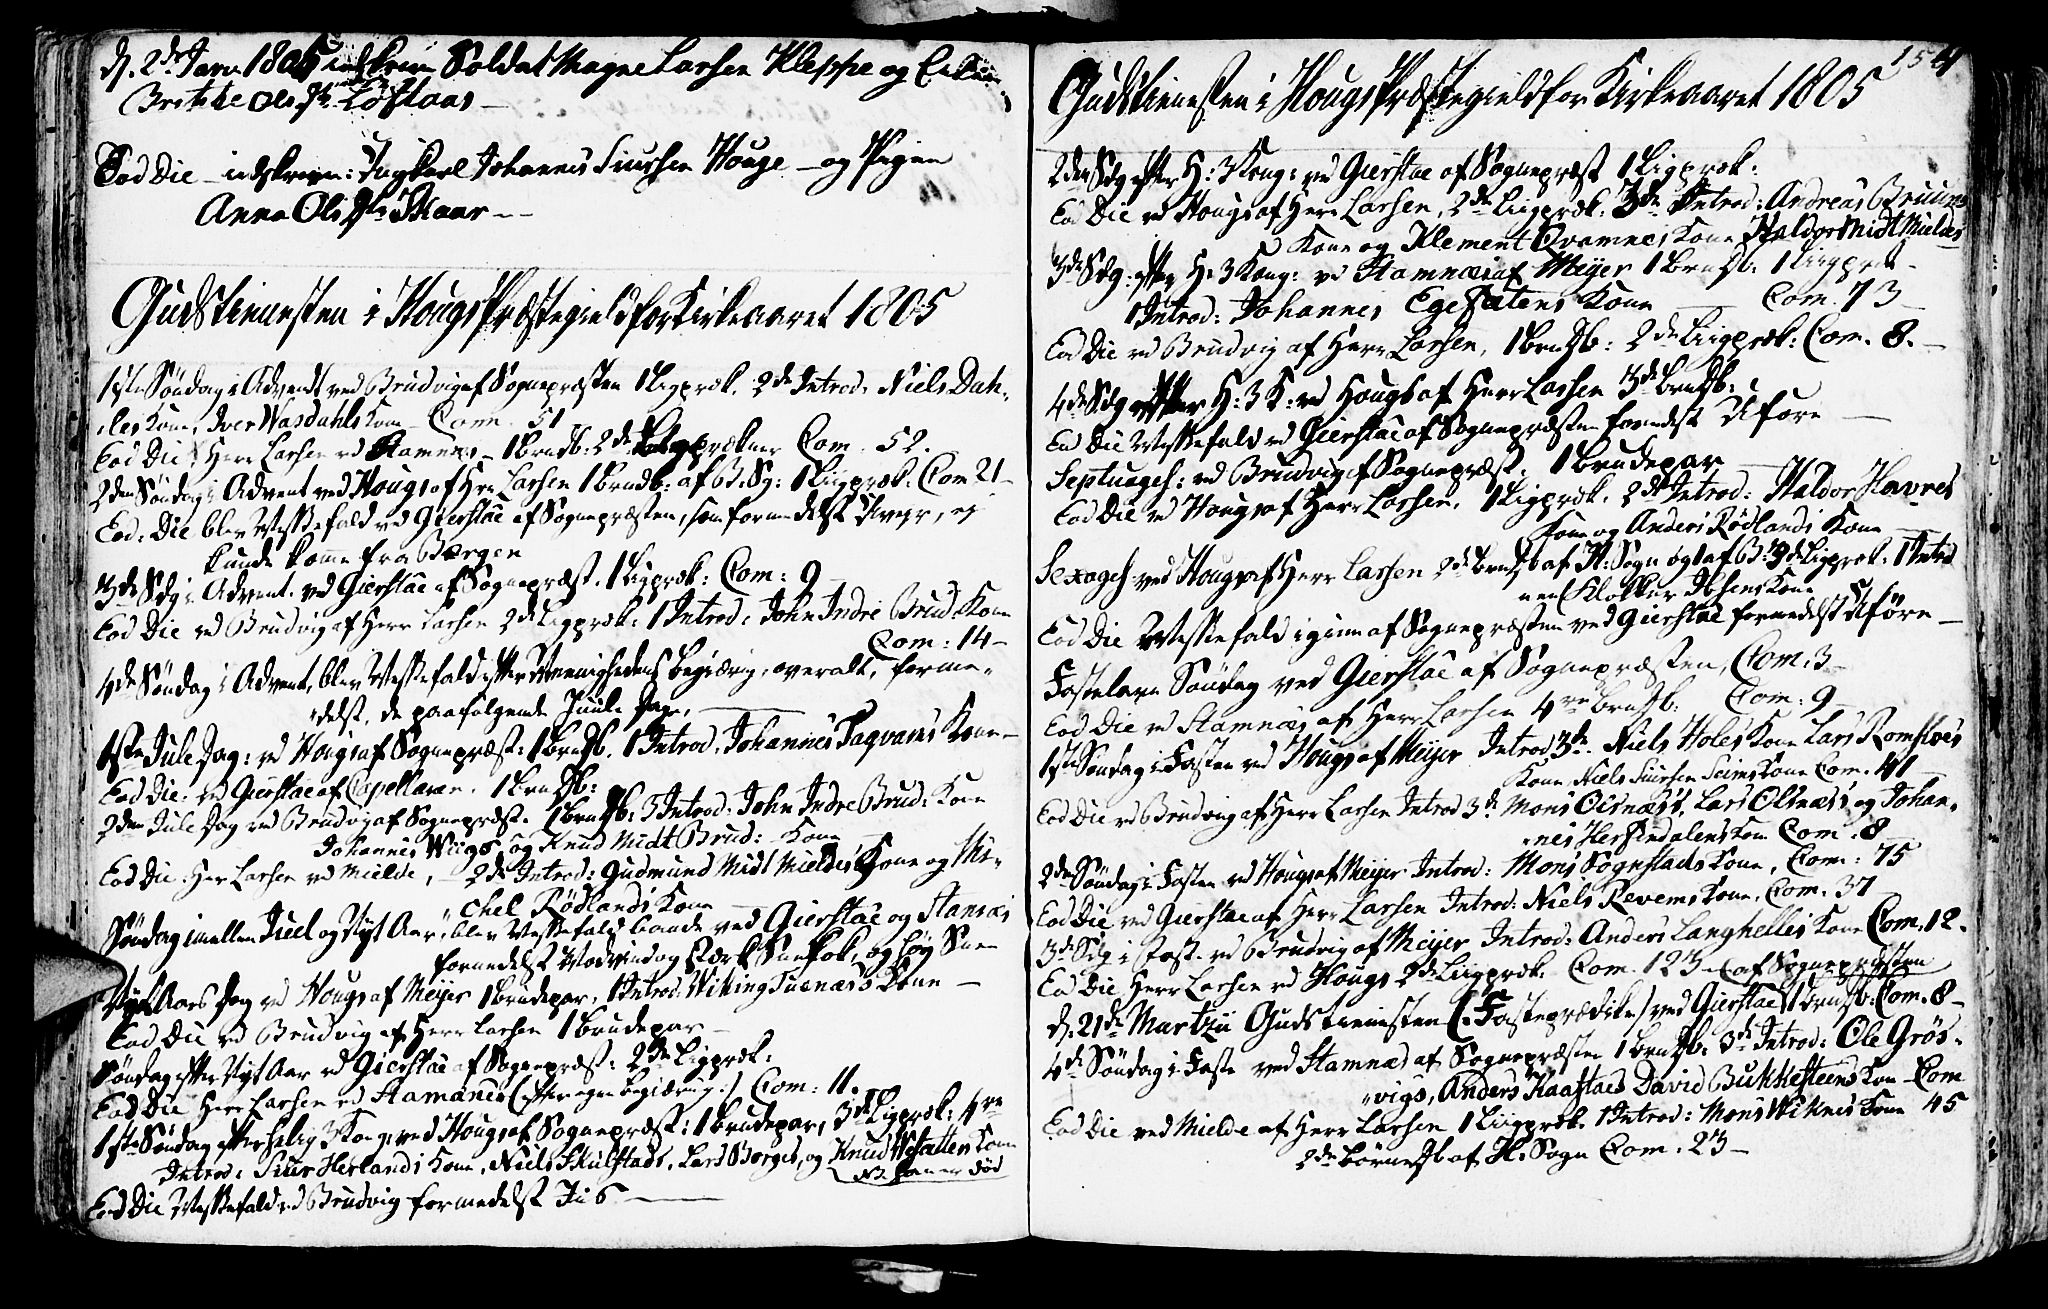 d. 2de Janv. 1805 indskreven Soldat Magne Larsen Kleppe og
Britthe Ols D. Løstaas
Eod Die indskreven: Ungkarl Johannes Siursen Houge og Pigen
Anna Ols D. Skaar
Gudstienesten i Hougs Præstegield for Kirkeaaret 1805
1ste Søndag i Advendt ved Brudvig af Sognepræsten 1 Ligpræk. 2de Introd. Niels Dah-
les Kone, Iver Wasdahls Kone Com. 51
Eod Die Herr Larsen ved Stamnes 1 Brndb. 2de Ligprækner Com. 52.
2den Søndag i Advent ved Hougs af Herr Larsen 1 Brndb: af B. Sg: 1 Liigpræk. Com 21
Eod: Die blev Messefald ved Gierstac af Sognepræsten, som formedelst Uveyr, ej
kunde komme fra Bergen
3de Sdg i Advent. ved Gierstac af Sognepræst. 1 Ligpræk: Com: 9
Eod Die ved Brudvig af Herr Larsen 2de Ligpræk: 1 Introd: John Indre Brud. Kone
Com: 14
4de Søndag i Advent, blev Messefald efter Menighedens begiæring, overalt, forme-
delst, de paafølgende Juule Dage,
1ste Jule Dag: ved Hougs af Sognepræst: 1 Brndb. 1 Introd. Johannes Fagvares Kone
Eod Die: ved Gierstac af Capellanen. 1 Brndb:
2den Jule Dag ved Brudvig af Sognepræst. 1 Brndb: 3 Introd: John Indre Brud: Kone
Johannes Wiigs og Knud Midt Brud: Kone
Eod Die: Herr Larsen ved Mielde, 2de Introd: Gudmund Midt Mieldes Kone og Mi-
chel Rødlands Kone
Søndag imellem Juel og Nyt Aar, blev Messefald baade ved Gierstac og Stamnes
formedelst Modvind og stærk Sneefok, og høy Snee
Nyt Aars Dag ved Hougs af Meyer 1 Brudepar, 1 Introd: Wiking Tuenæss Kone
Eod Die ved Brudvig af Herr Larsen 1 Brudepar
Søndag efter Nyt Aar ved Gierstac af Sognepræst: 2de Ligpræk:
Eod Die Herr Larsen ved Stamnes (efter egen begiæring:) Com: 11.
1ste Søndag efter Hellig 3 Kong: ved Hougs af Sognepræst: 1 Brudepar, 3de Ligpræk: 4re
Introd: Siur Herlands Kone, Niels Skulstads, Lars Borges, og Knud Kone
NB. er død
Eod Die Messefald ved Brudvig formedelst Iis
154
Gudstienesten i Hougs Præstegield for Kirkeaaret 1805
2den Sdg efter H: 3 Kong: ved Gierstac af Sognepræst 1 Ligpræk:
Eod Die ved Hougs af Herr Larsen, 2de Liigpræk: 3de Introd: Andreas Bruuns
Kone og Klement Qvamnes Kone Haldor Midt Mieldes
3de Sdg: efter H: 3 Kong: ved Stamnes af Meyer 1 Brndb: 1 Liigpræk
1 Introd: Johannes Egesætens Kone Com. 73
Eod Die ved Brudvig af Herr Larsen, 1 Brndb: 2de Liigpræk: Com. 8.
4de Sdg efter H: 3 K: ved Hougs af Herr Larsen 3de Brndb:
Eod Die Messefald ved Gierstac af Sognepræsten formedelst Uføre
Septuages: ved Brudvig af Sognepræst. 1 Brudepar
Eod Die ved Hougs af Herr Larsen, 1 Ligpræk. 2de Introd: Haldor Havres
Kone og Anders Rødlands Kone
Sexages: ved Hougs af Herr Larsen 2de Brndb af H: Sogn og 1 af B: 3de Ligpræk. 1 Introd
nem Klokker Ibsens Kone
Eod Die Messefald igien af Sognepræsten ved Gierstac formedelst Uføre
Fastelavn Søndag ved Gierstac af Sognepræsten, Com. 3
Eod Die ved Stamnes af Herr Larsen 4re Brndb. Com: 9
1ste Søndag i Fasten ved Hougs af Meyer Introd 3de. Niels Holes Kone Lars Romsloes
Kone Niels Siursen Seims Kone Com. 41
Eod Die ved Brudvig af Herr Larsen Introd 3de Mons Oisnæss, Lars Olsnæss og Johan-
nes Herfindalens Kone Com. 8
2den Søndag i Fasten ved Hougs af Meyer Introd: Mons Sognstads Kone, Com: 75
Eod Die ved Gierstac af Herr Larsen Introd: Niels Revems Kone. Com. 37
3de Sdg i Fast. ved Brudvig af Meyer Introd: Anders Langhelles Kone Com. 12.
Eod Die Herr Larsen ved Hougs 2de Liigpræk. Com. 123
d. 21de Martzii Gudstienesten (: Fasteprædiken) ved Gierstac (af Sognepræsten 1 Brndb. Com. 8
4de Søndag i Faste ved Stamnes af Sognepræsten 1 Brndb: 3de Introd: Ole Grøs-
vigs, Anders Kaastads David Bukkesteens Kone Com
Eod Die ved Mielde af Herr Larsen 1 Liigpræk. 1 Introd: Mons Wiknes Kone 45
2de Børnedb af H: Sogn Com. 23